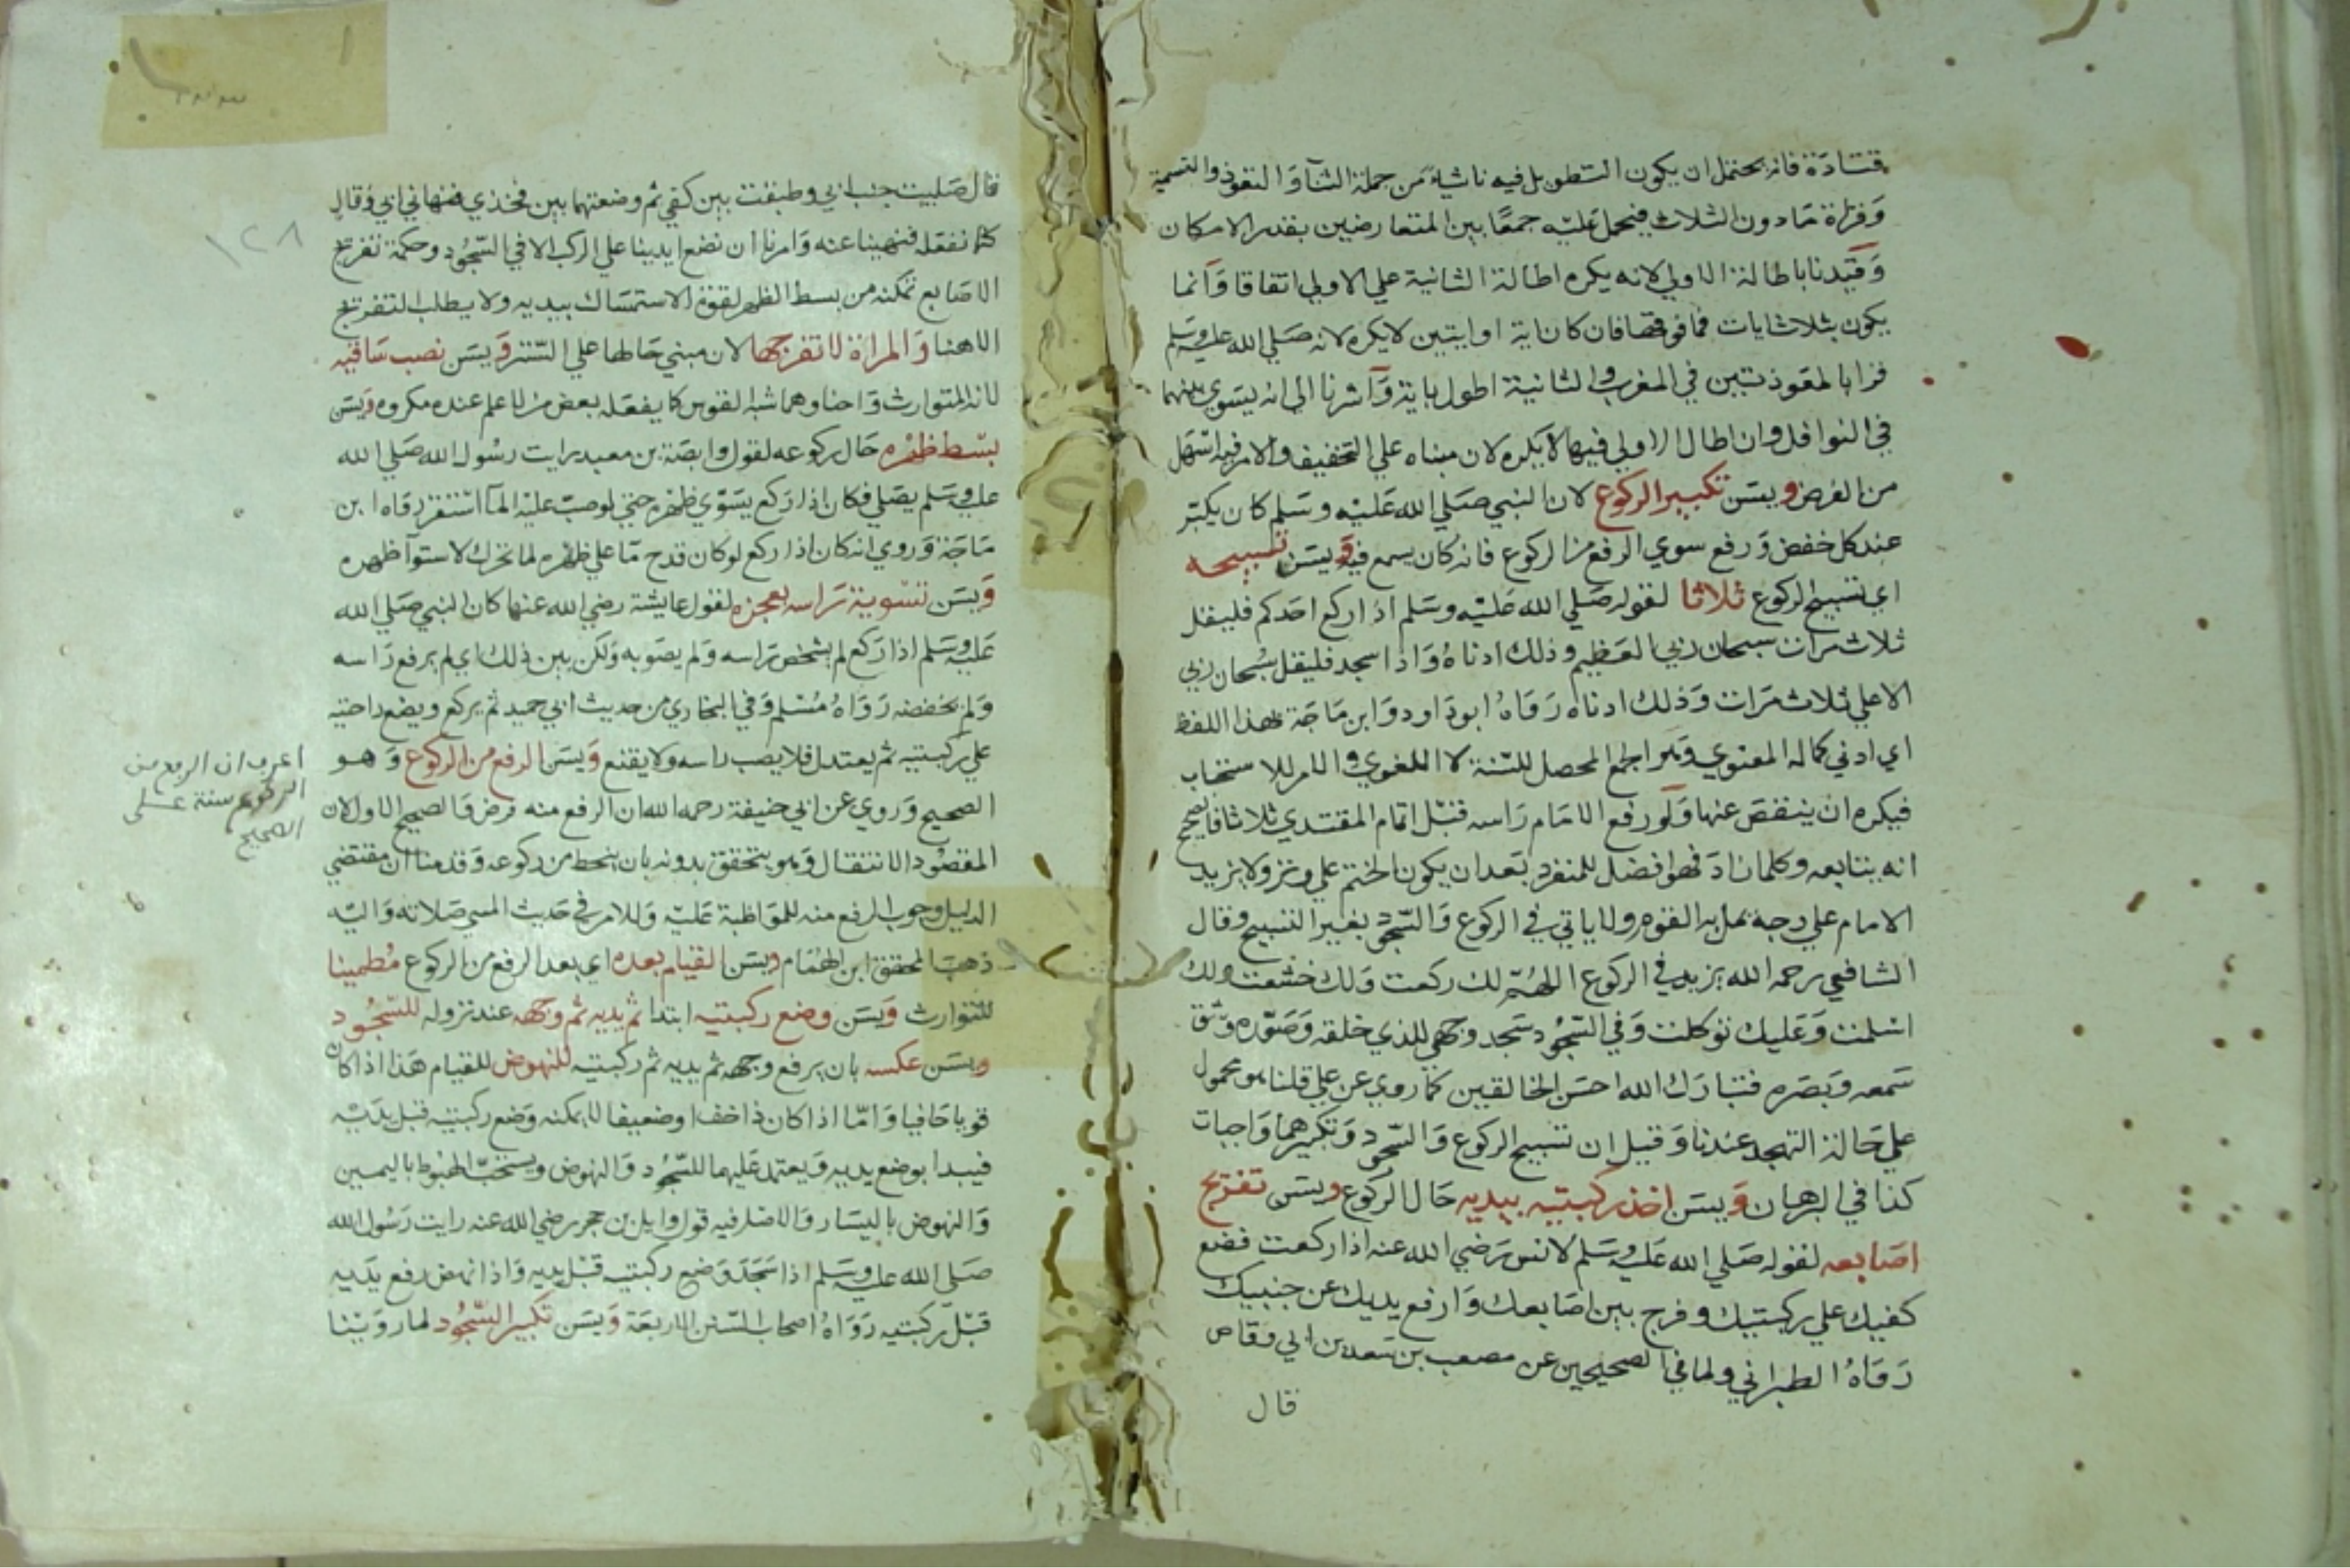 قتادة فانه يحتمل ان يكون التطويل فيه ناشيا من جملة الثنآ والتعوذ والتسمية
وقراة مادون الثلاث فيحمل عليه جمعا بين المتعارضين بقدر الامكان
وقيدنا باطالة الاولي لانه يكره اطالة الثانية علي الاولي اتفاقا وانما
يكون بثلاث ايات فما فوقها فان كان اية او ايتين لا يكره لانه صلي الله عليه وسلم
قرا بالمعوذتين في المغرب والثانية اطول باية وآشرنا الي انه يسوي بينهما
في النوافل وان اطال الاولي فيها لا يكره لان مبناه علي التخفيف والامر فيه اسهل
من الفرض ويسن تكبير الركوع لان النبي صلي الله عليه وسلم كان يكبر
عند كل خفض ورفع سوي الرفع من الركوع فانه كان يسمع فيه ويسن تسبيحه
اي تسبيح الركوع ثلاثا لقوله صلي الله عليه وسلم اذا ركع احدكم فليقل
ثلاث مرات سبحان ربي العظيم وذلك ادناه واذا سجد فليقل سبحان ربي
الاعلي ثلاث مرات وذلك ادناه رواه ابو داود وابن ماجة بهذا اللفظ
اي ادني كماله المعنوي وهو الجمع المحصل للسنة لا اللغوي والامر للاستحباب
فيكره ان ينقص عنها ولو رفع الامام راسه قبل اتمام المقتدي ثلاثا فالصحيح
انه يتابعه وكلما زاد فهو افضل للمنفرد بعد ان يكون الختم علي وتر ولا يزيد
الامام علي وجه يمل به القوم ولا ياتي في الركوع والسجود بغير التسبيح وقال
الشافعي رحمه الله يزيد في الركوع اللهم لك ركعت ولك خشعت ولك
اسلمت وعليك توكلت وفي السجود سجد وجهي للذي خلقه وصوره وشق
سمعه وبصره فتبارك الله احسن الخالقين كما روي عن علي قلنا هو محمول
علي حالة التهجد عندنا وقيل ان تسبيح الركوع والسجود وتكبيرهما واجبات
كذا في البرهان ويسن اخذ ركبتيه بيديه حال الركوع ويسن تفريج
اصابعه لقوله صلي الله عليه وسلم لانس رضي الله عنه اذا ركعت فضع
كفيك علي ركبتيك وفرج بين اصابعك وارفع يديك عن جنبيك
رواه الطبراني ولما في الصحيحين عن مصعب بن سعد بن ابي وقاص
قال
قال صليت جنب ابي وطبقت بين كفي ثم وضعتهما بين فخذي فنهاني ابي وقال
كنا نفعله فنهينا عنه وامرنا ان نضع ايدينا علي الركب الا في السجود وحكمة تفريج
الاصابع تمكنه من بسط الظهر لقوة الاستمساك بيديه ولا يطلب التفريج
الا هنا والمراة لا تفرجها لان مبني حالها علي الستر ويسن نصب ساقيه
لانه المتوارث واحناوهما شبه القوس كما يفعله بعض من لا علم عنده مكروه ويسن
بسط ظهره حال ركوعه لقول وابصة بن معبد رايت رسول الله صلي الله
عليه وسلم يصلي فكان اذا ركع يسوي ظهره حتي لو صب عليه المآ استقر رواه ابن
ماجة وروي انه كان اذا ركع لو كان قدح ما علي ظهره لما تحرك لاستوآ ظهره
ويسن تسوية راسه بعجزه لقول عايشة رضي الله عنها كان النبي صلي الله
عليه وسلم اذا ركع لم يشخص راسه ولم يصوبه ولكن بين ذلك اي لم يرفع راسه
ولم يخفضه رواه مسلم وفي البخاري من حديث ابي حميد ثم يركع ويضع راحتيه
علي ركبتيه ثم يعتدل فلا يصب راسه ولا يقنع ويسن الرفع من الركوع وهو
الصحيح وروي عن ابي حنيفة رحمه الله ان الرفع منه فرض والصحيح الاول لان
المقصود الانتقال وهو يتحقق بدونه بان ينحط من ركوعه وقدمنا ان مقتضي
الدليل وجوب الرفع منه للمواظبة عليه وللامر في حديث المسي صلاته واليه
ذهب المحقق ابن الهمام ويسن القيام بعده اي بعد الرفع من الركوع مطمينا
للتوارث ويسن وضع ركبتيه ابتدا ثم يديه ثم وجهه عند نزوله للسجود
ويسن عكسه بان يرفع وجهه ثم يديه ثم ركبتيه للنهوض للقيام هذا اذا كان
قويا حافيا واما اذا كان ذا خف او ضعيفا لا يمكنه وضع ركبتيه قبل يديه
فيبدا بوضع يديه ويعتمد عليهما للسجود والنهوض ويستحب الهبوط باليمين
والنهوض باليسار والاصل فيه قول وايل بن حجر رضي الله عنه رايت رسول الله
صلي الله عليه وسلم اذا سجد وضع ركبتيه قبل يديه واذا نهض رفع يديه
قبل ركبتيه رواه اصحاب السنن الاربعة ويسن تكبير السجود لما روينا
١٢٨
اعرف ان الرفع من
الركوع سنة على
الصحيح